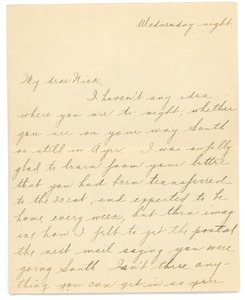 Wednesday night
My dear Nick,
I haven't any idea
where you are to night; whether
you are on your way South
or still in Ayr. I was awfully
glad to learn from your letter
that you had been transferred
to the 301st, and expected to be
home every week, but then imag
ine how I felt to get the postal
the next mail saying you were
going South. Isn't there any-
thing you can get in so you